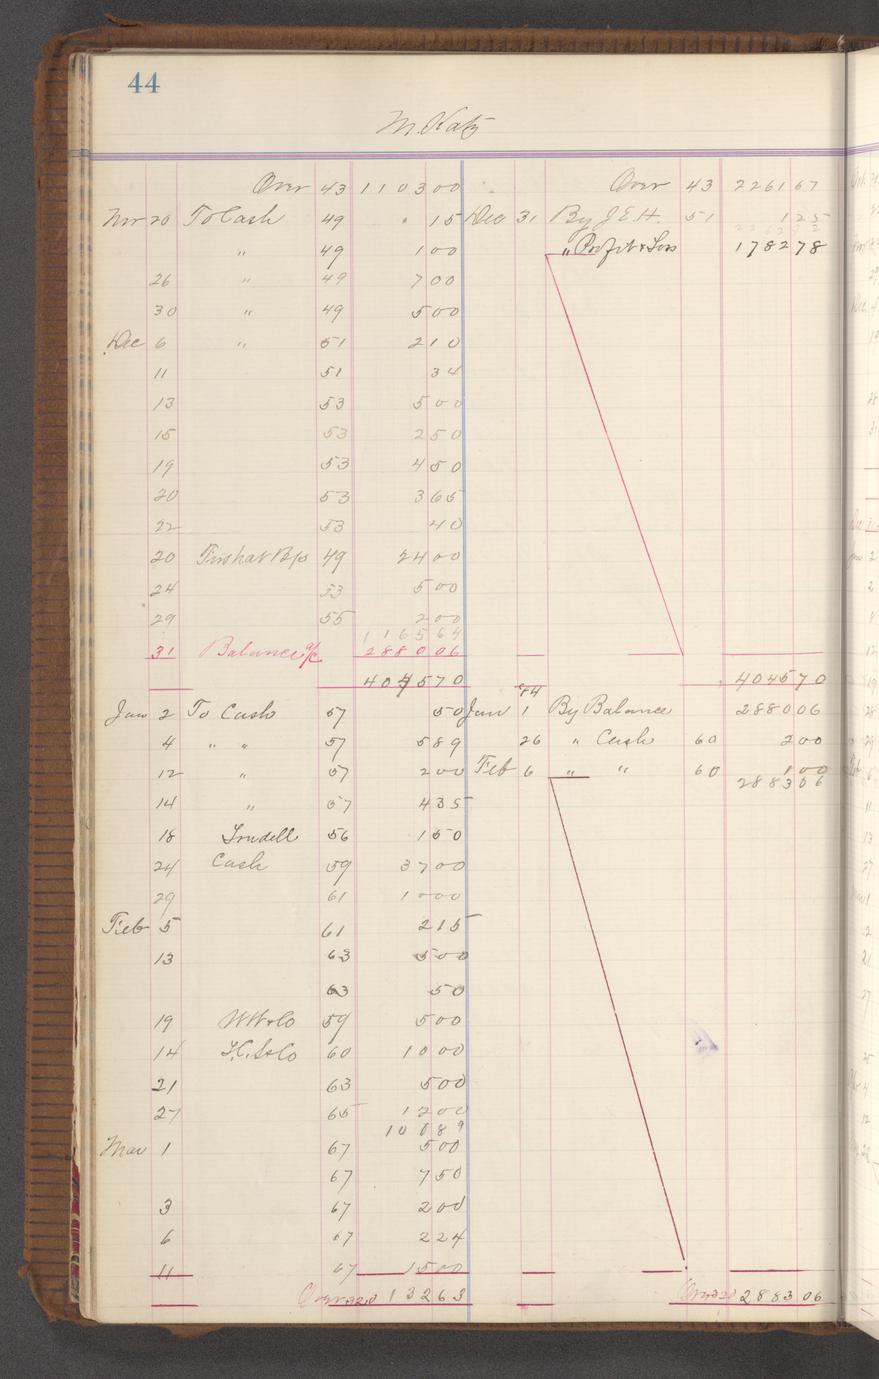 44
M. Katz
Over 43 1 1 0 3 00 Over 43 2 2 6 1 67
Nov 20 To Cash 49 15 Dec 31 By J. E. H. 51 1 25
" 49 1 00 " Profit & Loss 1 7 8 2 78
26 " 49 7 00
30 " 49 5 00
Dec 6 " 51 2 10
11 51 34
13 53 5 00
15 53 2 50
19 53 4 50
20 53 3 65
22 53 40
20 49 24 00
24 53 5 00
29 55 2 00
1 1 6 5 64
31 Balance a/c 2 8 8 0 06
4 0 4 5 70 4 0 4 5 70
84
Jan 2 To Cash 57 50 Jan 1 By Balance 2 8 8 0 06
4 " " 57 5 89 26 " Cash 60 2 00
12 " 57 2 00 Feb 6 " " 60 1 00
2 8 8 3 06
14 " 57 4 35
18 56 1 50
24 Cash 59 37 00
29 61 10 00
Feb 5 61 2 15
13 63 5 00
63 50
19 59 5 00
14 60 10 00
21 63 5 00
27 65 12 00
1 0 0 89
Mar 1 67 5 00
67 7 50
3 67 2 00
6 67 2 24
11 67 15 00
Over 320 1 3 2 63 Over 320 2 8 8 3 06